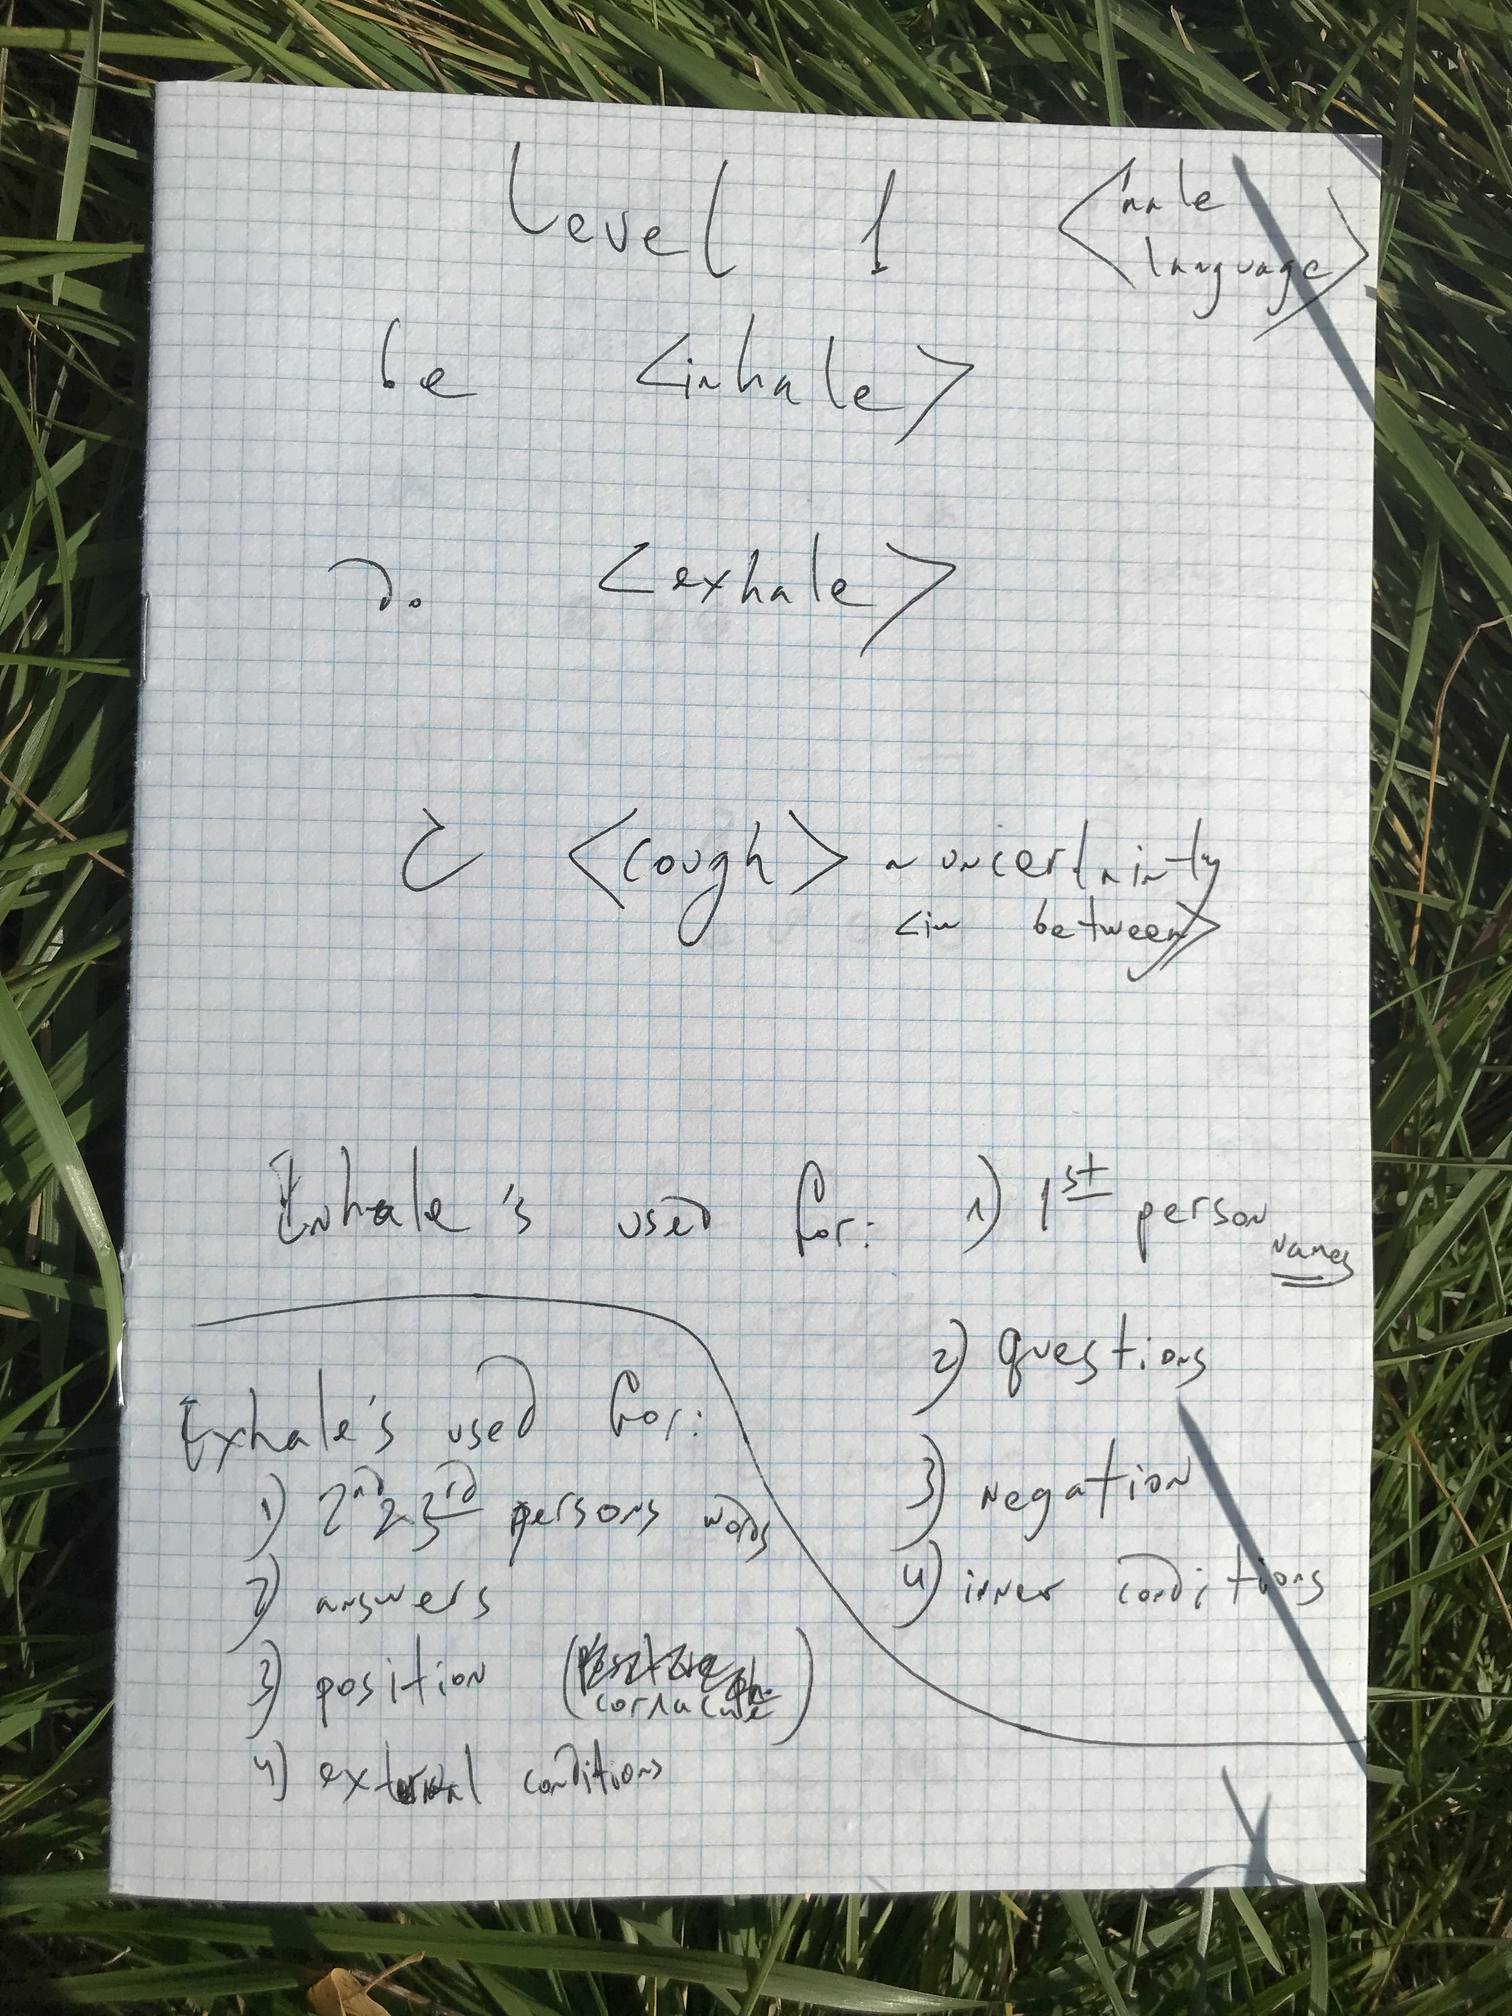 Level 1
<male
language>
be <inhale>
do <exhale>
<cough> ~ uncertainty
<in between>
Inhale's used for: 1) 1st person
names
2) questions
3) negation
4) inner conditions
Exhale's used for:
1) 2nd 3rd persons words
2) answers
3) position
4) external conditions